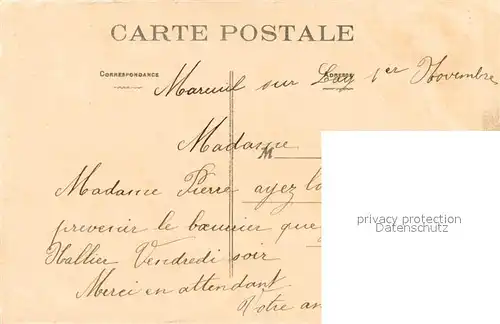 CARTE POSTALE
CORRESPONDANCE
ADRESSE
Mareuil sur Lay 1er Novembre
Madame
M
Madame Pierre ayez
prevenir le beurrier que
Hallier Vendredi soir
Merci en attendant
Votre
privacy protection
Datenschutz